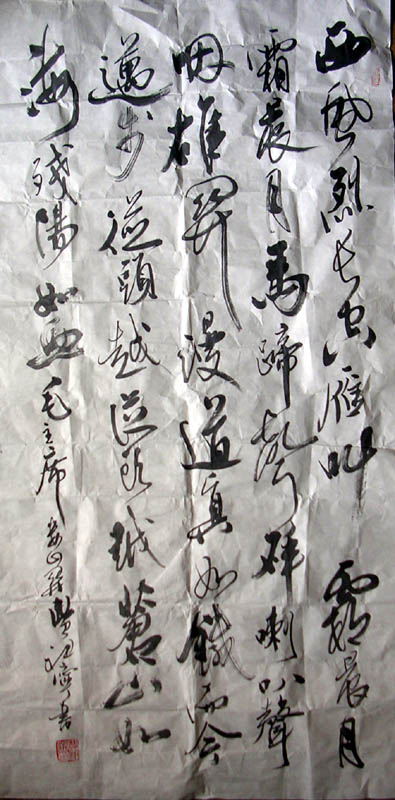 西風烈長空雁叫霜晨月
霜晨月馬蹄聲碎喇叭聲
咽雄關漫道真如鐵而今
邁步從頭越從頭越蒼山如
海殘陽如血毛主席婁山關書